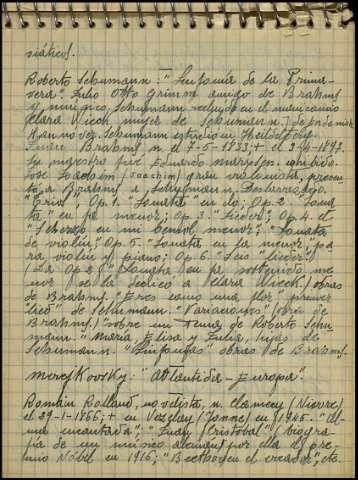 siático".
Roberto Schumann: "Sinfonía de la Prima-
vera". Julio Otto Grimm amigo de Brahms
y mi amigo. Schumann recluído en el manicomio
Clara Wieck mujer de Schumann.
Schumann estudió en Heidelberg.
Brahms n. el 7-5-1833; + el 3-4-1897.
Su maestro fué Eduardo Marxsen.
José Joachim (Joachim) gran violinista, presen-
tó a Brahms a Schumann.
"Trío", Op. 1. "Sonata" en do; Op. 2. "Sona-
ta" en fa menor; Op. 3. "Lieder"; Op. 4. el
"Scherzo en mi bemol menor"; "Sonata
de violín"; Op. 5. "Sonata en fa menor, pa-
ra violín y piano; Op. 6. "Seis "lieder".
(La Op. 2 ("Sonata en fa sostenido me-
nor" se la dedicó a Clara Wieck) obras
de Brahms. "Eres como una flor" primer
"lied" de Schumann. "Variaciones" (obra de
Brahms) "sobre un Tema de Roberto Schu-
mann. "María, Elisa y Julia, hijas de
Schumann. "Sinfonías" obras de Brahms.
"Atlántida-Europa".
Romain Rolland, novelista, n. Clamecy (Nievre)
el 29-1-1866; + en Vezelay (Yonne) en 1945. "El
alma encantada"; "Juan Cristóbal" (biogra-
fía de un músico alemán) por ella el pre-
mio Nóbel en 1916; "Beethoven el creador", etc.